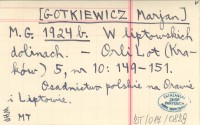 [GOTKIEWICZ Marjan]
M.G. 1924 b. W liptowskich
dolinach. – Orli Lot (Kra-
ków) 5, nr 10: 149-151.
Osadnictwo polskie na Orawie
i Liptowie.
MT